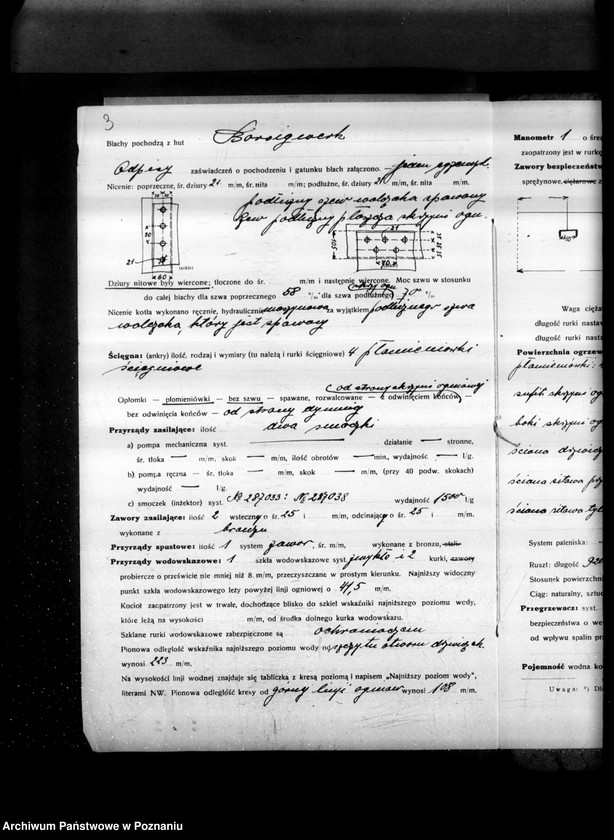 3
Blachy pochodzą z hut Borsigwerk
Odpisy zaświadczeń o pochodzeniu i gatunku blach załączono. – jeden egzempl.
Nicenie: poprzeczne, śr. dziury 21 m/m, śr. nita m/m; podłużne, śr. dziury 21 m/m, śr. nita m/m.
podłużny szew walczaka spawany
Szew podłużny płaszcza skrzyni ogn.
21
60
21
70
Dziury nitowe były wiercone; tłoczone do śr. m/m i następnie wiercone. Moc szwu w stosunku
do całej blachy dla szwa poprzecznego 58 %, dla szwa podłużnego 70 %
Nicenie kotła wykonano ręcznie, hydraulicznie maszynowo za wyjątkiem podłużnego szwa
walczaka, który jest spawany
Ścięgna: (ankry) ilość, rodzaj i wymiary (tu należą i rurki ścięgniowe) 4 płomieniówki
ścięgniowe
od strony skrzyni ogniowej
Opłomki — płomieniówki — bez szwu — spawane, rozwalcowane — z odwinięciem końców —
bez odwinięcia końców — od strony dymnicy
Przyrządy zasilające: ilość dwa smoczki
a) pompa mechaniczna syst. działanie — stronne,
śr. tłoka — m/m, skok — m/m, ilość obrotów — min., wydajność — l/g.
b) pompa ręczna — śr. tłoka — m/m, skok — m/m, (przy 40 podw. skokach)
wydajność — l/g.
c) smoczek (inżektor) syst. № 287033: № 287038 wydajność 1500 l/g
Zawory zasilające: ilość 2 wsteczny o śr. 25 i m/m, odcinający o śr. 25 i m/m.
wykonane z bronzu
Przyrządy spustowe: ilość 1 system zawór, śr. m/m, wykonane z bronzu, stali
Przyrządy wodowskazowe: 1 szkła wodowskazowe syst. zwykłe i 2 kurki, zawory
probiercze o prześwicie nie mniej niż 8 m/m, przeczyszczane w prostym kierunku. Najniższy widoczny
punkt szkła wodowskazowego leży powyżej linji ogniowej o 41,5 m/m.
Kocioł zaopatrzony jest w trwałe, dochodzące blisko do szkieł wskaźniki najniższego poziomu wody,
które leżą na wysokości m/m, od środka dolnego kurka wodowskazu.
Szklane rurki wodowskazowe zabezpieczone są ochraniaczem
Pionowa odległość wskaźnika najniższego poziomu wody od szczytu otworu drzwiczek
wynosi 223 m/m.
Na wysokości linji wodnej znajduje się tabliczka z kresą poziomą i napisem „Najniższy poziom wody",
literami NW. Pionowa odległość kresy od górnej linji ogniow. wynosi 108 m/m.
Manometr 1 o śre
zaopatrzony jest w rurkę
Zawory bezpieczeństw
sprężynowe, ciężarowe z
Waga cięża
długość rurki nastaw
długość rurki nasta
Powierzchnia ogrzew
płomieniówki:
sufit skrzyni og
boki skrzyni og
ściana drzwicz
ściana sitowa prz
ściana sitowa tyl
System paleniska:
Ruszt: długość 920
Stosunek powierzchni
Ciąg: naturalny, sztuc
Przegrzewacz: syst.
bezpieczeństwa o we
od wpływu spalin prz
Pojemność wodna ko
Uwaga: *) Dł
Archiwum Państwowe w Poznaniu